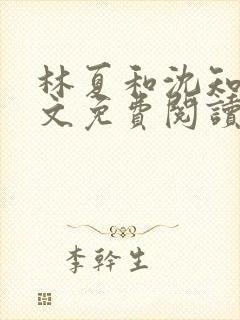 林夏和沈知
文免費閱讀
李幹生